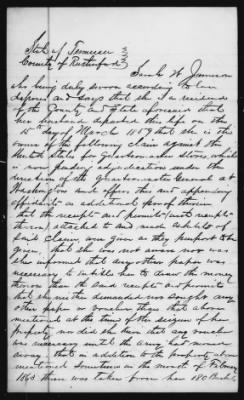 State of Tennessee
County of Rutherford
Sarah W. Jameson
who being duly sworn according to law
deposes and says that she is a residende
of the County and State aforesaid that
her husband departed this life on the
15th day of March 1859 that she is the
owner of the following claim against the
United States for
now pending adjudication under the
direction of the Quartermaster General at
Washington and offers this and appending
affidavits as additional proof
that the receipts and permits
attached to and made exhibits of
said claim were given as they purport to be
given, that she was not aware nor was
she informed that any other paper was
necessary to enable her to draw the money
thereon than the said receipts and permits
that she neither demanded nor sought any
other paper or voucher than that above
mentioned at the time of the seizure of the
Property, nor did she know that any voucher
was necessary until the army had moved
away. that in addition to the property above
mentioned sometime in the month of February
1863 there was taken from her 180